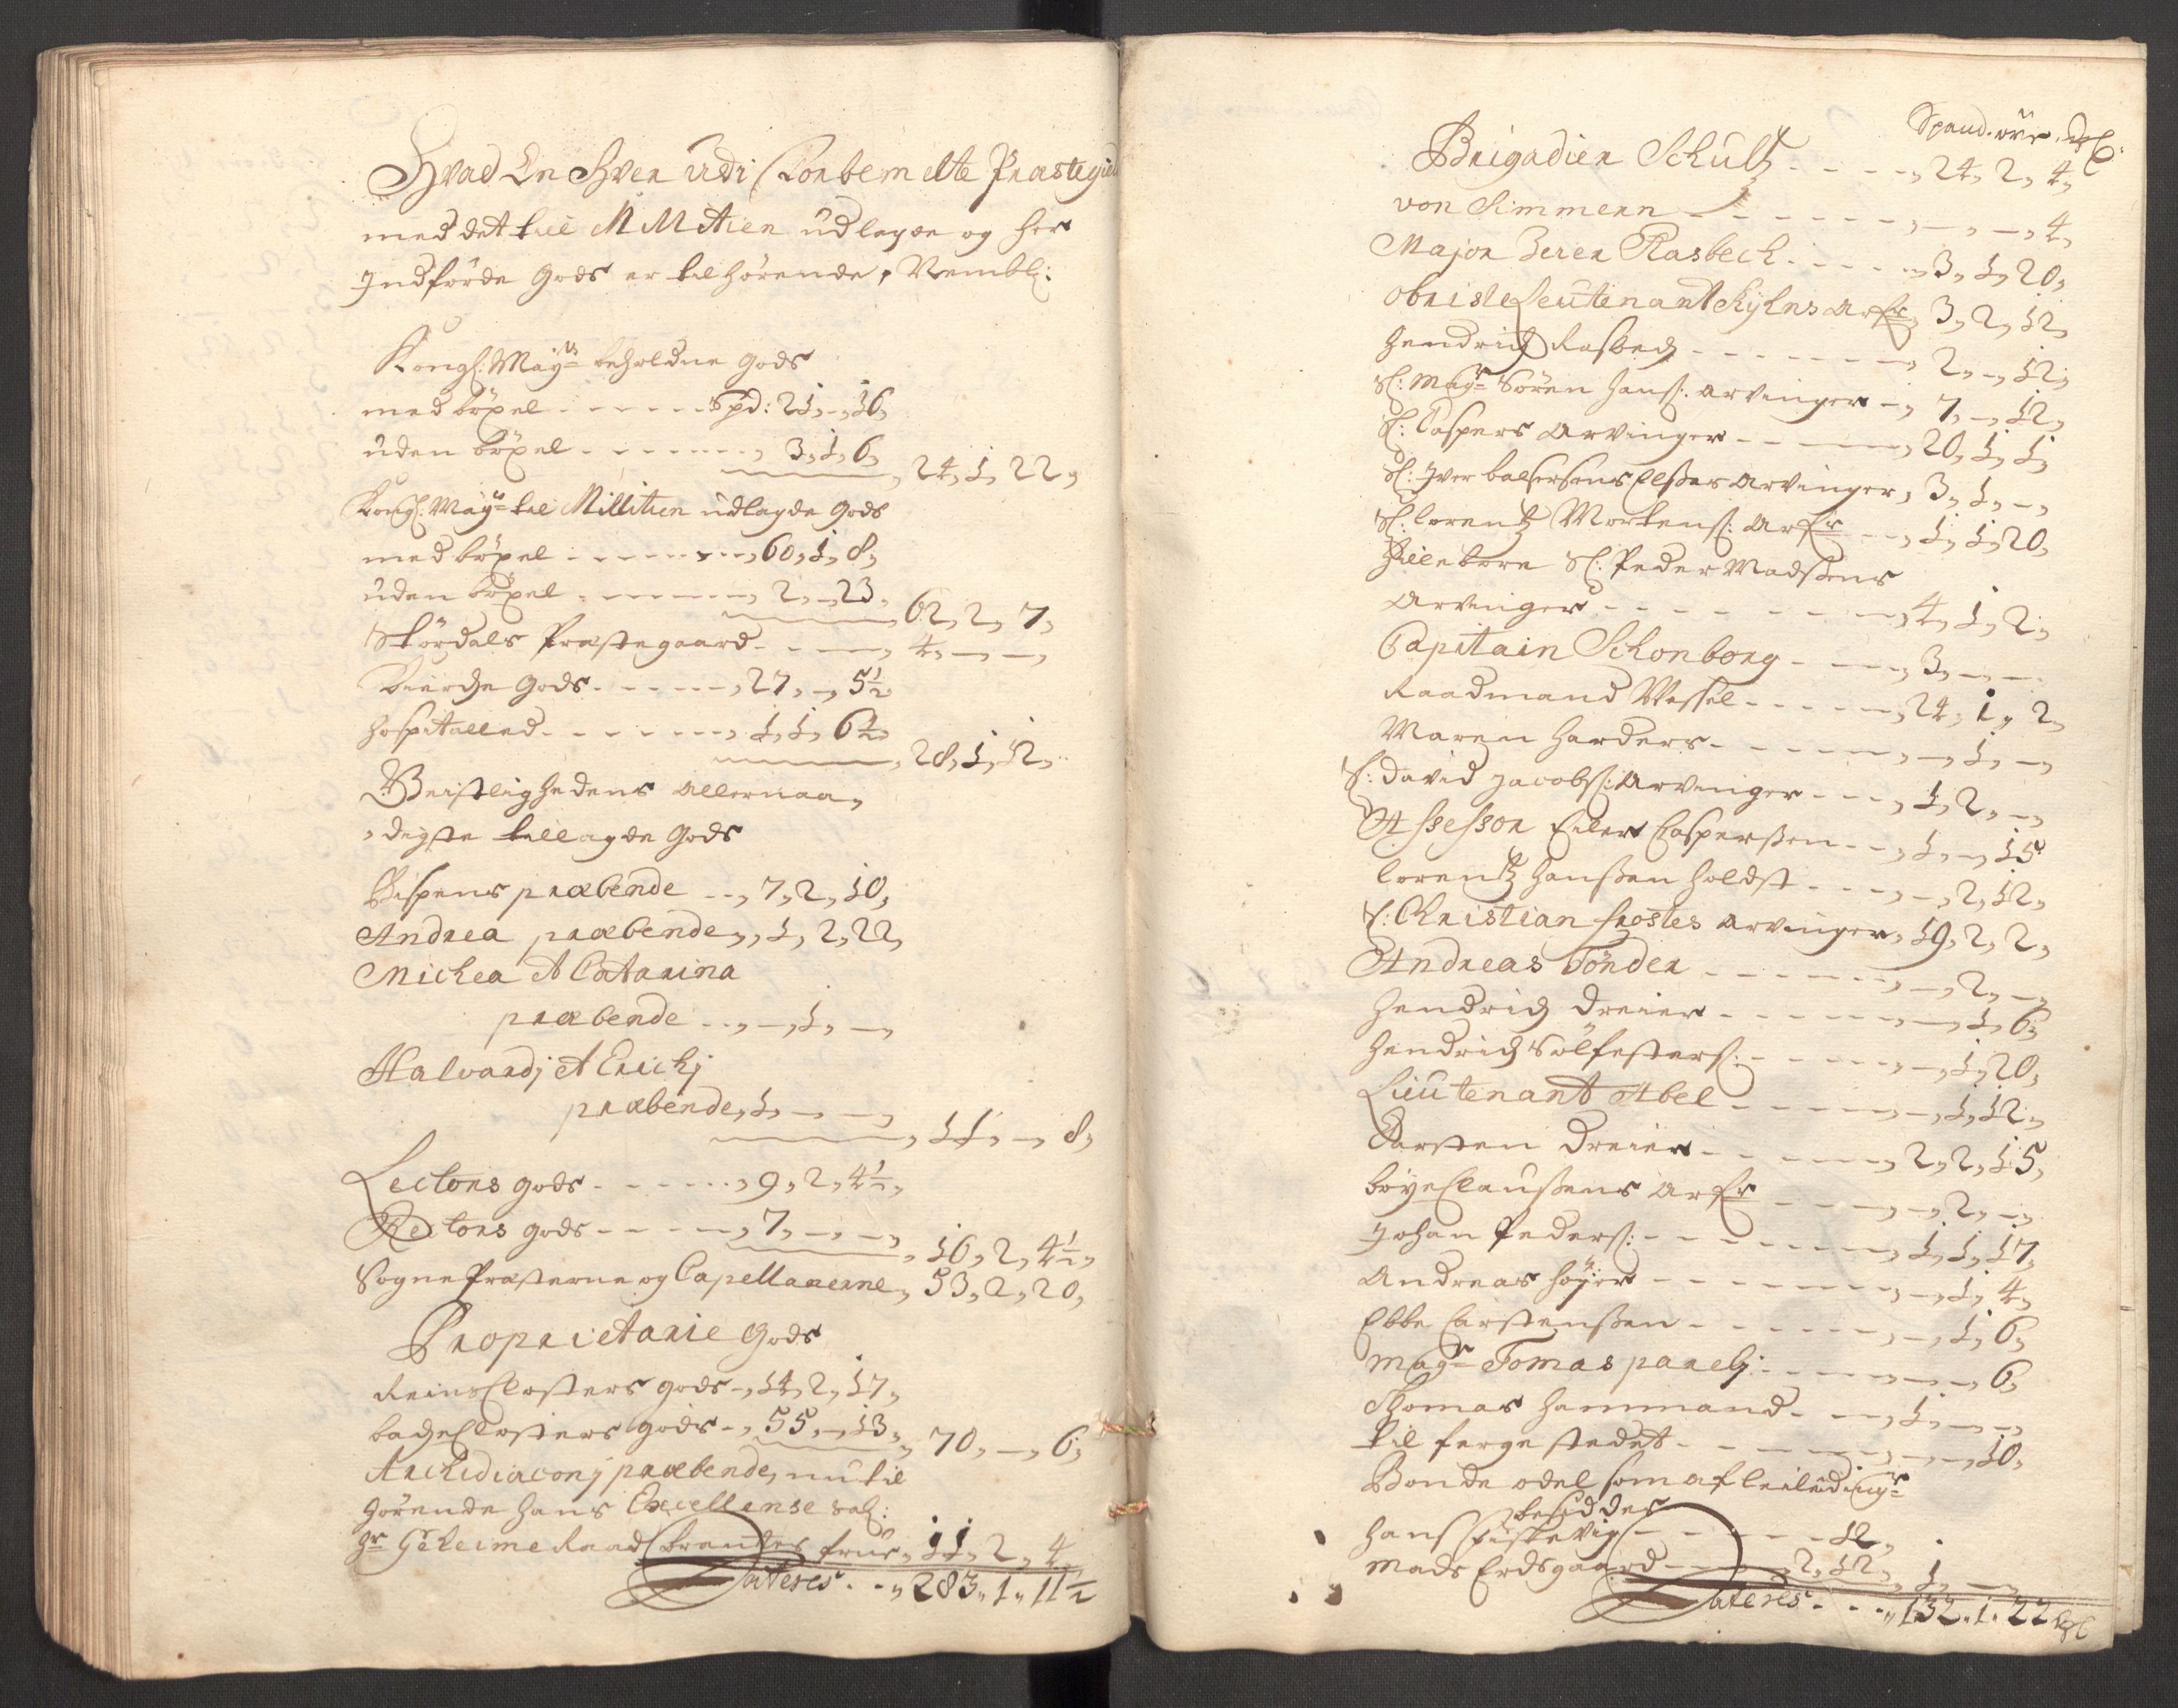 Hvad En Hver udi forbemelte Præstegield
med det till Militien udlagde og her
Indförde Gods er tilhörende, Nembl:
Kongl: Mayts beholdne Gods
med böxel - - - - - Spd: 21,-,16,
uden böxel - - - - - - - 3,1,6,
24,1,22,
Kongl: Mayts til Militien udlagde Gods
med böxel - - - - - - 60,1,8,
uden böxel - - - - - - 2,-,23,
62,2,7,
Stördals Præstegaard - - - - 4,-,-,
Kircke Gods - - - - - 27,-,5½
Hospitalled - - - - - - 1,1,6½
28,1,12,
Geistlighedens allernaa,
,digste tillagde Gods
Bispens præbende - - 7,2,10,
Andrea præbende,, 1,2,22,
Michea et Catarina
præbende - - -,1,-,
Halvardj et Erichj
præbende, 1,-,-,
11,-,8,
Lectors gods - - - - - - 9,2,4½,
Rectors gods - - - - - 7,-,-,
16,2,4½,
Sogne Præsterne og Capellanerne, 53,2,20,
Proprietarie Gods
Reins Closters gods -, 14,2,17,
Backe Closters gods -, 55,-,13,
70,-,6,
Archidiaconj præbende, nu til
hörende hans Excellense sal:
Hr Geheime Raad Brandtes frue, 11,2,4,
Lateres - -,, 283,, 1,, 11½
Spand. öre. Mkl:
Brigadier Schultz - - - - -, 24,2,4,
von Timmern - - - - - - -,-,-,4,
Major Zeren Rasbech - - - - -, 3,1,20,
obriste Leutenant Kyhns arfr, 3,2,12,
Hendrich Rasbech - - - - - - -, 2,-,12,
Sl: Magr Sören Hanss: arvinger -, 7,-,12,
Sl: Caspers Arvinger - - - -, 20,1,1,
Sl: Iver balsersens Elsses Arvinger, 3,1,-,
Sl: Lorentz Mortenss: Arfr - -, 1,1,20,
Hillebore Sl: Peder Madssens
Arvinger - - - - - - - -, 4,1,2,
Capitain Schonborg - - - -, 3,-,-,
Raadmand Wessel - - - - -, 24,1,2,
Maren Harders - - - - - -,-,1,-,
Sl: David Jacobss: Arvinger - - -, 1,2,-,
Assessor Eiler Casperssen - -, 1,-,15
Lorentz Hanssen Holdst - - -,-,2,12,
Sl: Christian frostes Arvinger, 19,2,2,
Andreas Tönder - - - - - -,-,2,-,
Hendrich Dreier - - - - - -,-,1,6,
Hendrich Sölfesters: - - - - -,-,1,20,
Lieutenant Abel - - - - - -,-,1,12,
Carsten Dreier - - - - - -, 2,2,15,
Böye Claussens Arfr - - - -,-,2,-,
Johan Peders: - - - - - - -, 1,1,17,
Andreas Höyer - - - - - - -,-,1,4,
Ebbe Carstenssen - - - - - -,-,1,6,
Magr Tomas parelj: - - - - -,-,-,6,
Thomas Hammand - - -, 1,-,-,
til ferge stedet - - - - - -,-,-,10,
Bonde odel som af leilendinger
besiddes
Hans Fiskevig - - - - - 12,
Mads Erdsgaard - - - - 2,12, 1,-,
Lateres - - -,, 132,, 1,, 22 Mkl